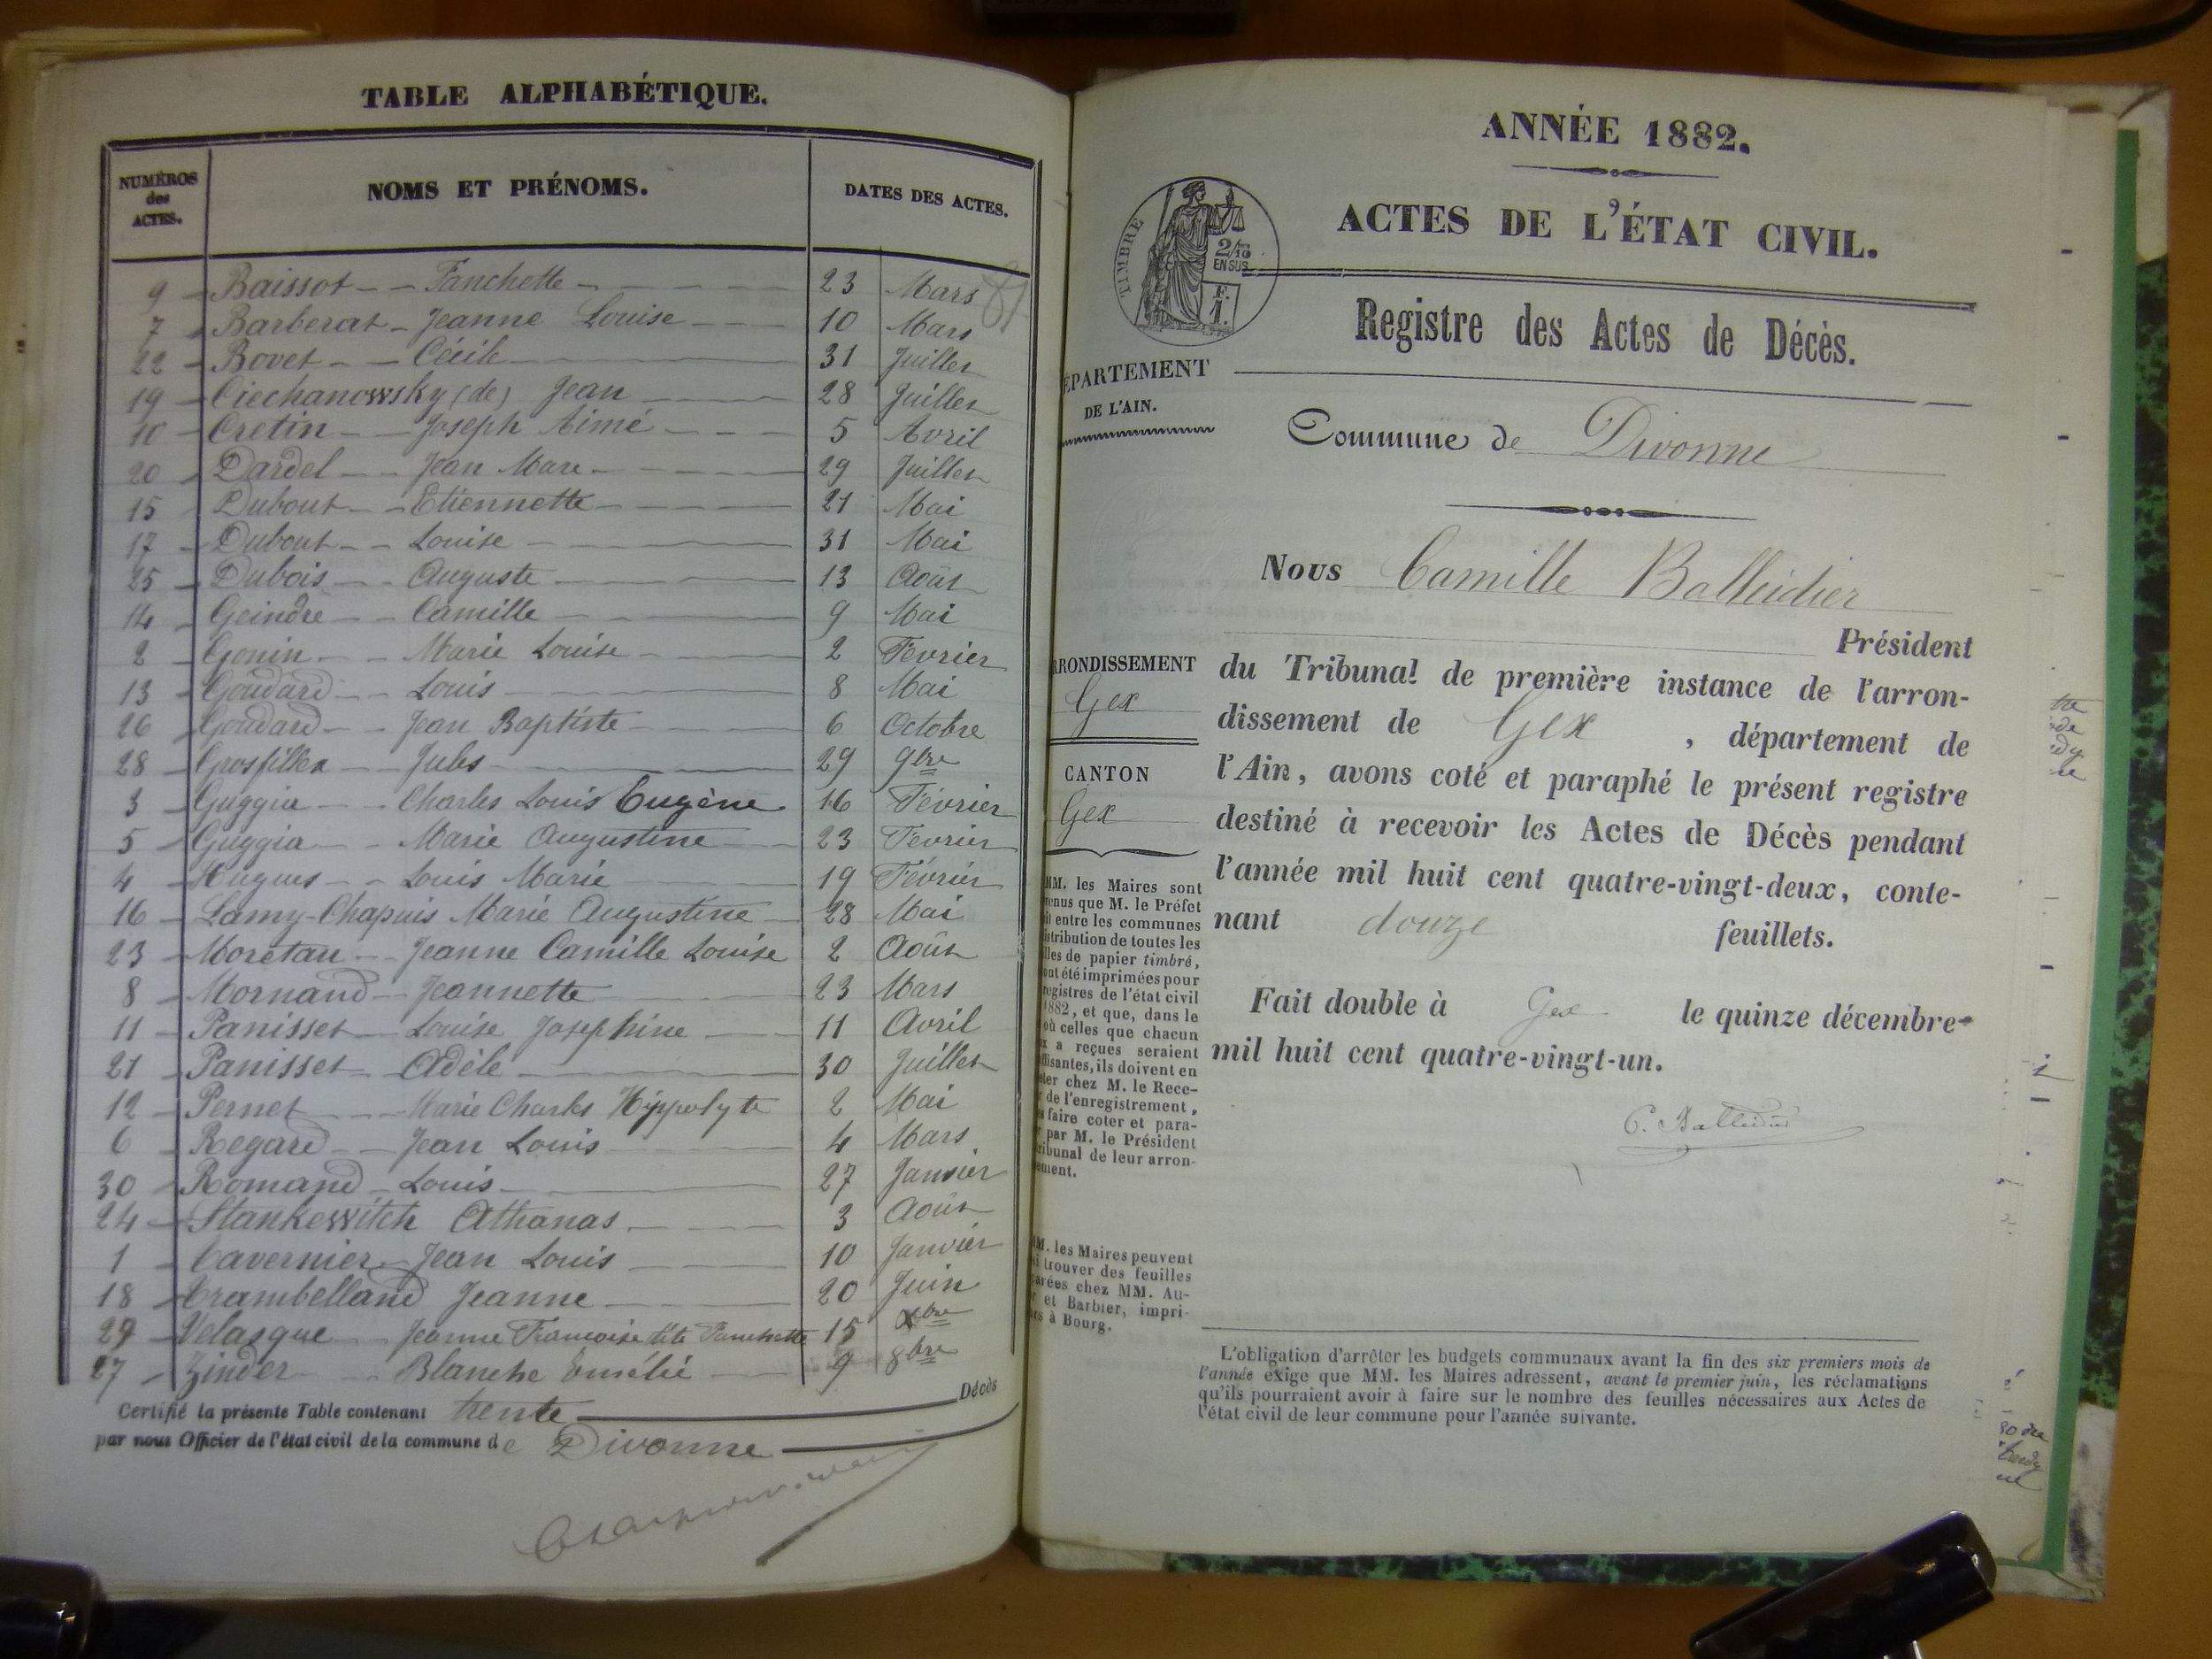 TABLE ALPHABÉTIQUE.
NUMÉROS des ACTES. NOMS ET PRÉNOMS. DATES DES ACTES.
9 Baissot Fanchette 23 Mars
7 Barberat Jeanne Louise 10 Mars
22 Bovet Cécile 31 Juillet
19 Ciechanowsky (de) Jean 28 Juillet
10 Cretin Joseph Aimé 5 Avril
20 Dardel Jean Marc 29 Juillet
15 Dubout Etiennette 21 Mai
17 Dubout Louise 31 Mai
25 Dubois Auguste 13 Août
14 Geindre Camille 9 Mai
2 Gonin Marie Louise 2 Février
13 Goudard Louis 8 Mai
26 Goudard Jean Baptiste 6 Octobre
28 Grosfillex Jules 29 9bre
3 Guggia Charles Louis Eugène 16 Février
5 Guggia Marie Augustine 23 Février
4 Hugues Louis Marie 19 Février
16 Lamy-Chapuis Marie Augustine 28 Mai
23 Morétau Jeanne Camille Louise 2 Août
8 Mornand Jeannette 23 Mars
11 Panisset Louise Josephine 11 Avril
21 Panisset Adèle 30 Juillet
12 Pernet Marie Charles Hippolyte 2 Mai
6 Regard Jean Louis 4 Mars
30 Romand Louis 27 Janvier
24 Stankewitch Athanas 3 Août
1 Tavernier Jean Louis 10 Janvier
18 Trambelland Jeanne 20 Juin
29 Velasque Jeanne Francoise dite Fanchette 15 Xbre
27 Zinder Blanche Emélie 9 8bre
Certifié la présente Table contenant trente Décès
par nous Officier de l'état civil de la commune de Divonne
ANNÉE 1882.
ACTES DE L'ÉTAT CIVIL.
TIMBRE
2/10
EN SUS
F.
1.
Registre des Actes de Décès.
ÉPARTEMENT
DE L'AIN.
Commune de Divonne
Nous Camille Balleidier
Président
RRONDISSEMENT
Gex
CANTON
Gex
du Tribunal de première instance de l'arron-
dissement de Gex, département de
l'Ain, avons coté et paraphé le présent registre
destiné à recevoir les Actes de Décès pendant
l'année mil huit cent quatre-vingt-deux, conte-
nant douze feuillets.
Fait double à Gex le quinze décembre
mil huit cent quatre-vingt-un.
C. Balleidier
MM. les Maires sont
enus que M. le Préfet
it entre les communes
stribution de toutes les
lles de papier timbré,
ont été imprimées pour
registres de l'état civil
1882, et que, dans le
où celles que chacun
x a reçues seraient
ffisantes, ils doivent en
eter chez M. le Rece-
r de l'enregistrement,
s faire coter et para-
r par M. le Président
ribunal de leur arron-
ement.
MM. les Maires peuvent
i trouver des feuilles
arées chez MM. Au-
r et Barbier, impri-
rs à Bourg.
L'obligation d'arrêter les budgets communaux avant la fin des six premiers mois de
l'année exige que MM. les Maires adressent, avant le premier juin, les réclamations
qu'ils pourraient avoir à faire sur le nombre des feuilles nécessaires aux Actes de
l'état civil de leur commune pour l'année suivante.